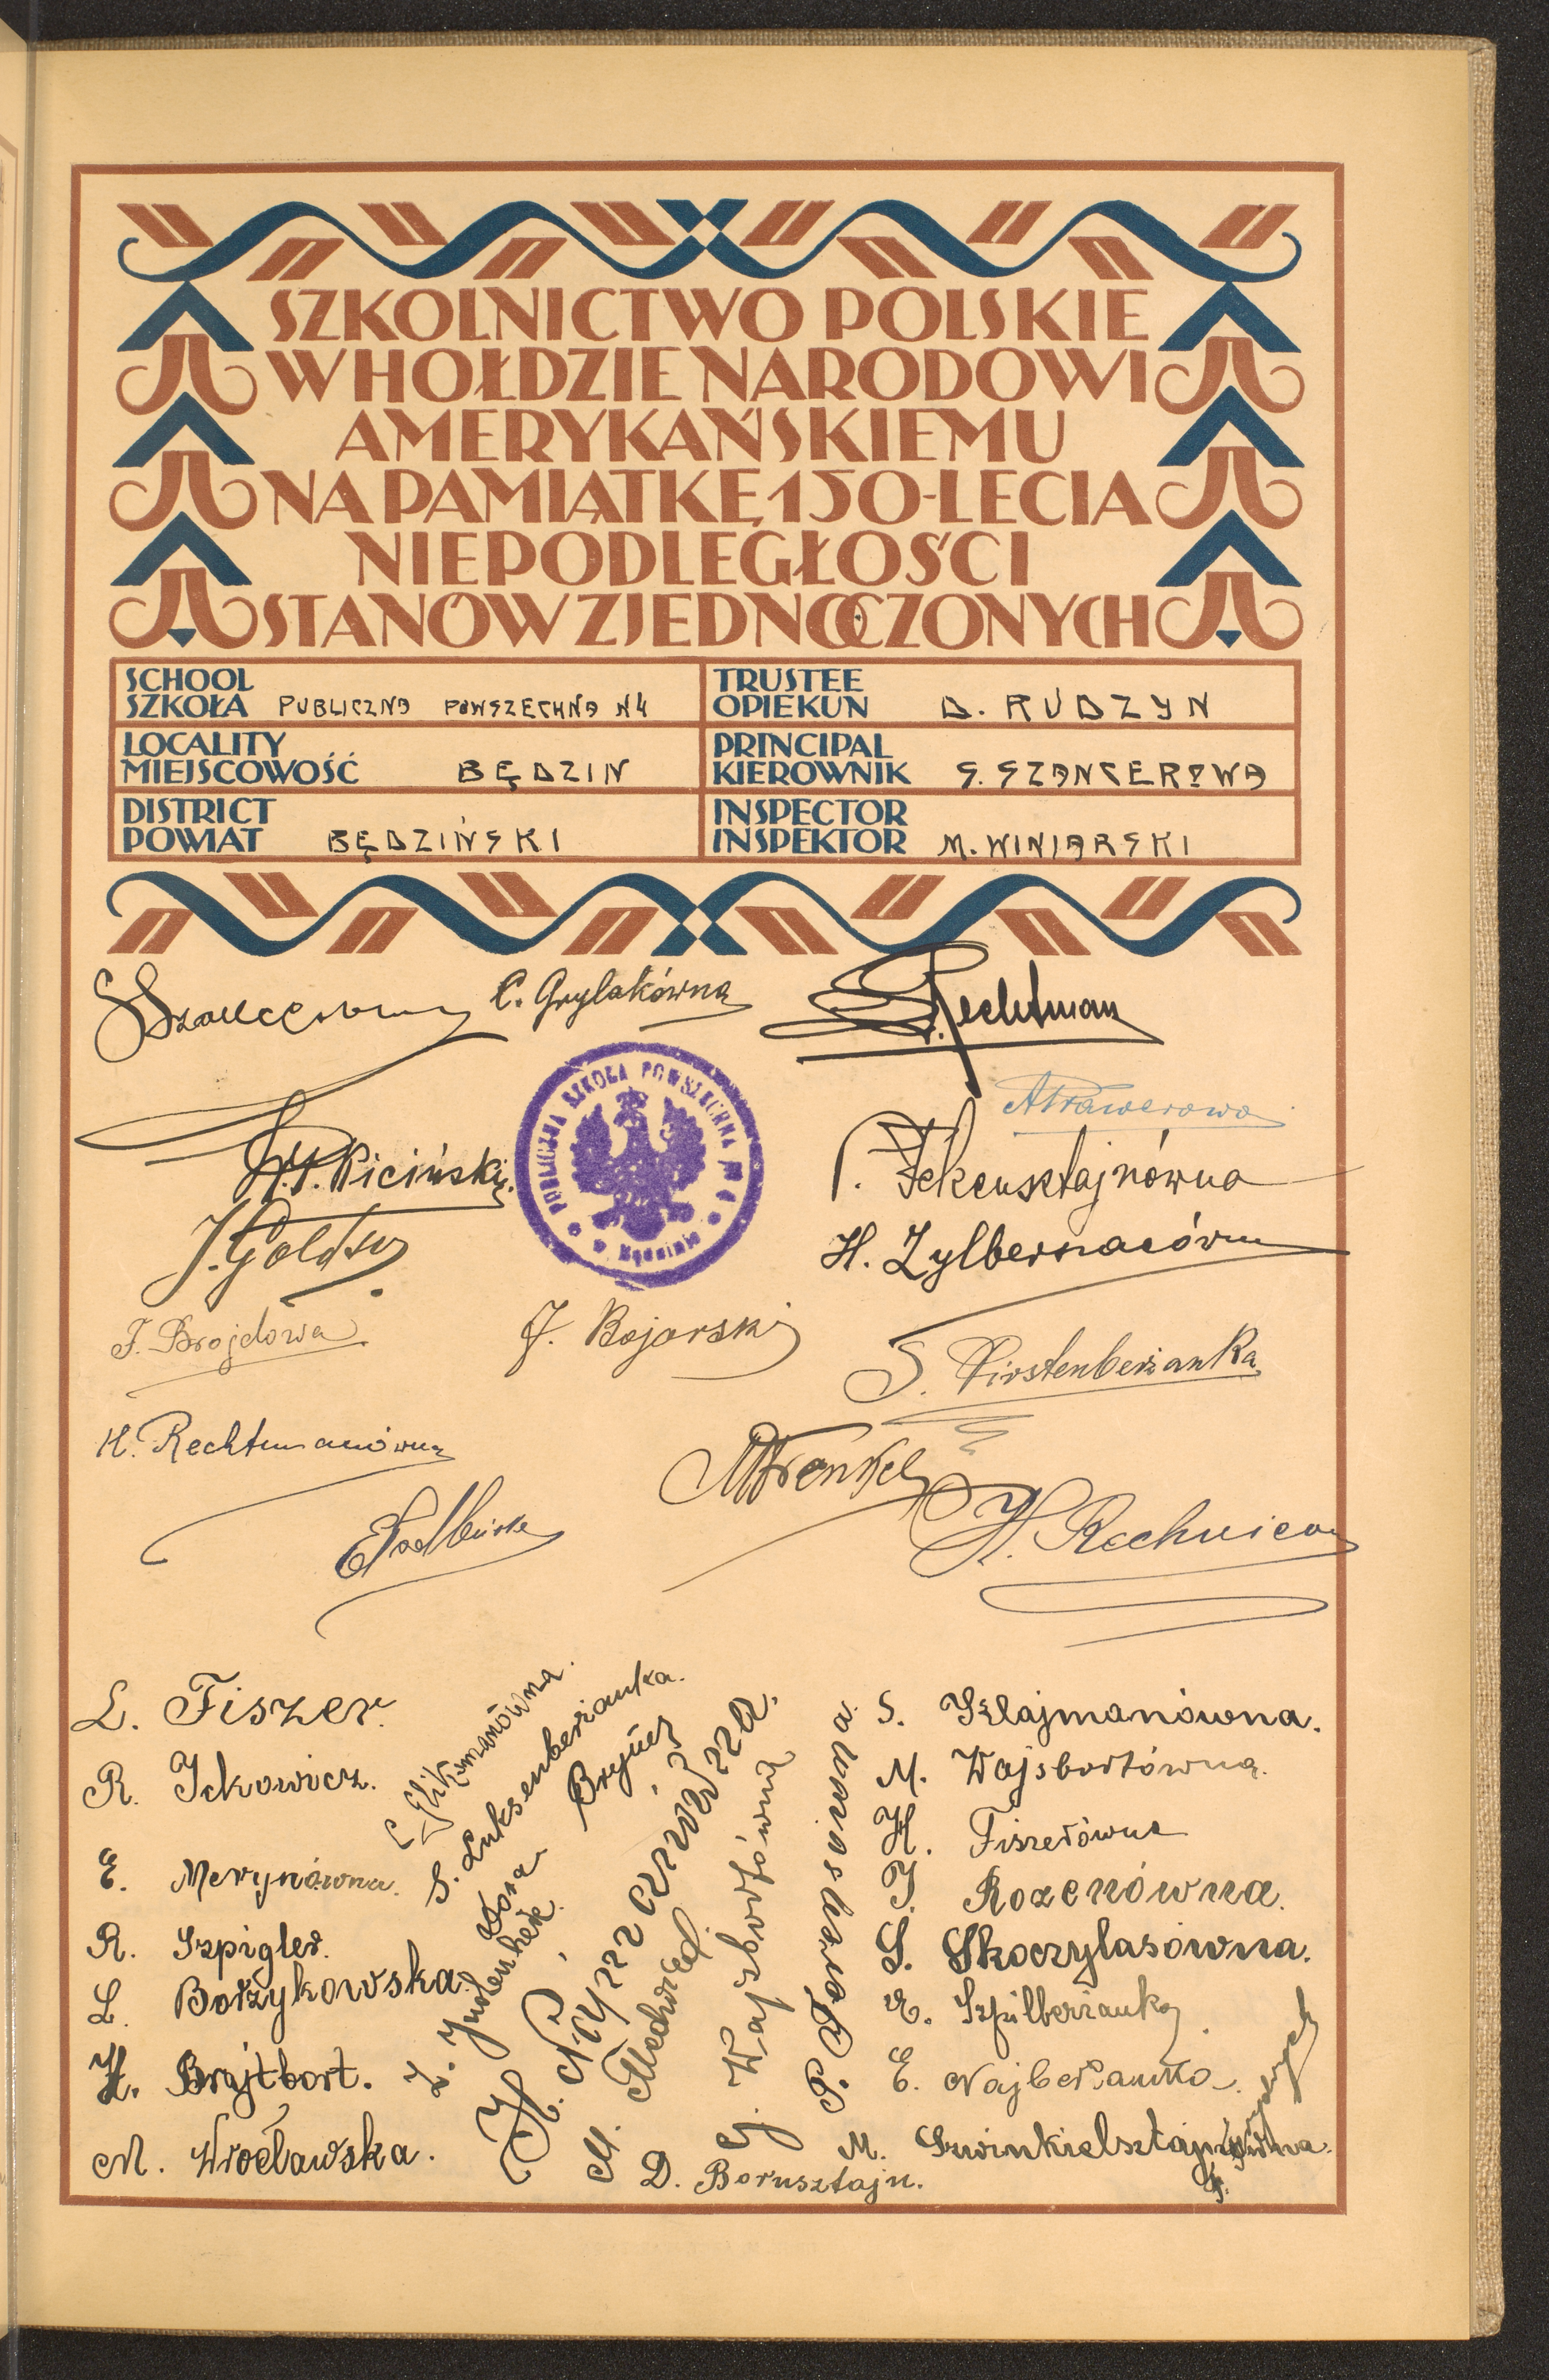 SZKOLNICTWO POLSKIE
W HOŁDZIE NARODOWI
AMERYKAŃSKIEMU
NA PAMIĄTKĘ 150-LECIA
NIEPODLEGŁOŚCI
STANÓW ZJEDNOCZONYCH
SCHOOL
SZKOŁA PUBLICZNA POWSZECHNA N4
TRUSTEE
OPIEKUN D. RUDZYN
LOCALITY
MIEJSCOWOŚĆ BĘDZIN
PRINCIPAL
KIEROWNIK S. SZANCEROWA
DISTRICT
POWIAT BĘDZIŃSKI
INSPECTOR
INSPEKTOR M. WINIARSKI
C. Grylakówna
Rechtman
PUBLICZNA SZKOŁA POWSZECHNA № 4
w Będzinie
A Prawerowa
Kiciński
H. Zylberszacówna
F. Brojdowa
J. Bojarski
S. Firstenberżanka
H. Rechtmanówna
M Frenkel
H. Rechnicow
L. Fiszer.
R. Ickowicz.
E. Merynówna.
R. Szpigler.
L. Borzykowska.
H. Brajtbort.
M. Wrocławska.
C. Glikmanówna.
S. Luksenberżanka.
M. Fledwied
G. Wajsbortówna
D. Borusztajn.
S. Szlajmanówna.
M. Wajsbortówna.
H. Fiszerówna
J. Rozenówna.
S. Skoczylasówna.
E. Szpilberżanka.
E. Najberżanka.
M. Szwinkielsztajnówna.